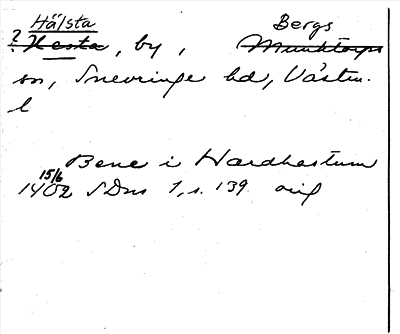 Hälsta Bergs
? Hesta, by, Munktorps
sn, Snevringe hd, Västm.
l
Bene i Hardhastum
15/6
1402 SDns 1, s. 139 orig